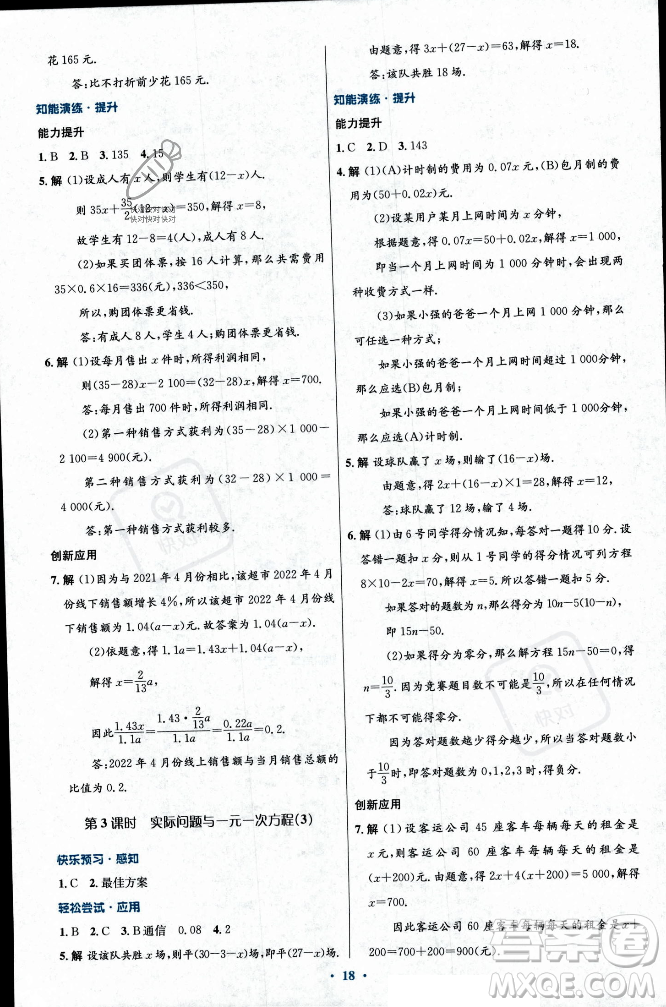 花 165 元.
答:比不打折前少花 165 元.
知能演练·提升
能力提升
1.B 2.B 3.135 4.15
5.解 (1)设成人有 x 人,则学生有(12-x)人.
则 35x+35/2(12-x)=350,解得 x=8,
故学生有 12-8=4(人).
(2)如果买团体票,按 16 人计算,那么共需费用
35×0.6×16=336(元),336<350,
所以,购团体票更省钱.
答:有成人 8 人,学生 4 人,购团体票更省钱.
6.解 (1)设每月售出 x 件时,所得利润相同,
则(35-28)x-2 100=(32-28)x,解得 x=700.
答:每月售出 700 件时,所得利润相同.
(2)第一种销售方式获利为(35-28)×1 000-
2 100=4 900(元).
第二种销售方式获利为(32-28)×1 000=4 000(元).
答:第一种销售方式获利较多.
创新应用
7.解 (1)因为与 2021 年 4 月份相比,该超市 2022 年 4 月
份线下销售额增长 4%,所以该超市 2022 年 4 月份线下销售额为 1.04(a-x)元.故答案为 1.04(a-x).
(2)依题意,得 1.1a=1.43x+1.04(a-x),
解得 x=2/13a,
因此1.43x/1.1a=1.43·2/13a/1.1a=0.22a/1.1a=0.2.
答:2022 年 4 月份线上销售额与当月销售总额的
比值为 0.2.
第 3 课时 实际问题与一元一次方程(3)
快乐预习·感知
1.C 2.最佳方案
轻松尝试·应用
1.B 2.C 3.B 通信 0.08 4.2
5.解 设该队共胜 x 场,则平(30-3-x)场,即平(27-x)场.
由题意,得 3x+(27-x)=63,解得 x=18.
答:该队共胜 18 场.
知能演练·提升
能力提升
1.C 2.D 3.143
4.解 (1)(A)计时制的费用为 0.07x 元,(B)包月制的费
用为(50+0.02x)元.
(2)设某用户某月上网的时间为 x 分钟,
根据题意,得 0.07x=50+0.02x,解得 x=1 000,
即当一个月上网时间为 1 000 分钟时,选择这两
种收费方式一样.
(3)如果小强的爸爸一个月上网 1 000 分钟,那么
可任选一种方式;
如果小强的爸爸一个月上网时间超过 1 000 分钟,
那么应选(B)包月制;
如果小强的爸爸一个月上网时间少于 1 000 分钟,
那么应选(A)计时制.
5.解 设球队赢了 x 场,则输了(16-x)场.
由题意,得 2x+(16-x)×1=28,解得 x=12,
答:球队赢了 12 场,输了 4 场.
6.解 (1)由 6 号同学得分情况知,每答对一题得 10 分,设
答错一题扣 x 分,则由 5 号同学的得分情况可列方程
8×10-2x=70,解得 x=5,所以答错一题扣 5 分.
如果答对的题数为 n,那么所得分数为 10n-5(10-n)
,即 15n-50.
(2)如果得分为零分,那么解方程 15n-50=0,得
n=10/3,因为竞赛题目数不可能为10/3,所以在任何情况
下都不可能得零分.
因为答对题数越少得分越少,所以当答对题数少
于10/3时,即答对题数为 0,1,2,3 时,得负分.
创新应用
7.解 (1)设客运公司 45 座客车每辆每天的租金是
x 元,则客运公司 60 座客车每辆每天的租金是
(x+200)元,由题意,得 2x+4(x+200)=5 000,解得
x=700.
因此客运公司 60 座客车每辆每天的租金是 x+
200=700+200=900(元).
18
快对快对
快对快对快对
快对
快对
答案圈
MXQE.COM